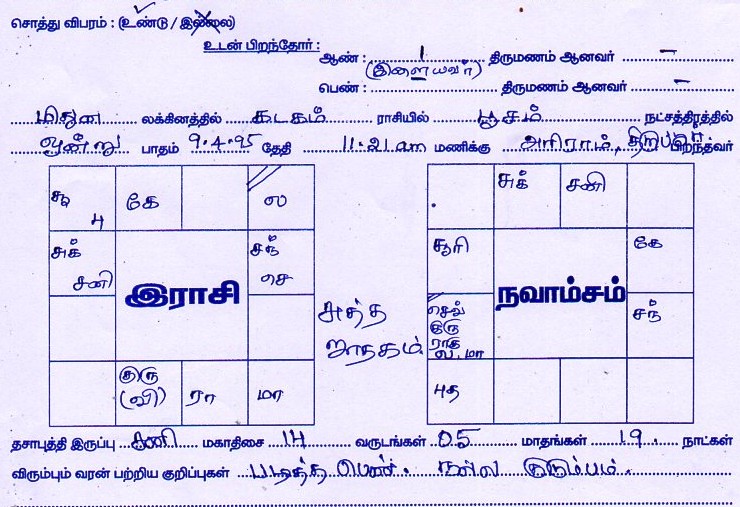 சொத்து விபரம் : (உண்டு / இல்லை)
உடன் பிறந்தோர் :
ஆண் : 1 திருமணம் ஆனவர் –
(இளையவர்)
பெண் : திருமணம் ஆனவர் –
மிதுன லக்கினத்தில் கடகம் ராசியில் பூசம் நட்சத்திரத்தில்
ஒன்று பாதம் 9.4.95 தேதி 11.21 am மணிக்கு திருப்பூர் பிறந்தவர்
சூ கே ல
4
சுக் சந்
சனி செ
இராசி
குரு
(வி) ரா மா
சுத்த
ஜாதகம்
சுக் சனி
சூரி கே
நவாம்சம்
செவ் சந்
குரு
ராகு
ல. மா
புத
தசாபுத்தி இருப்பு சனி மகாதிசை 14 வருடங்கள் 05 மாதங்கள் 19. நாட்கள்
விரும்பும் வரன் பற்றிய குறிப்புகள் படித்த பெண். நல்ல குடும்பம்.